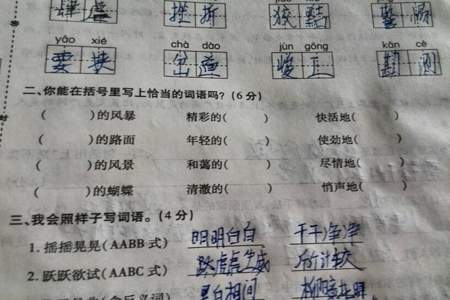 挫折 狡黠
yāo xié chà dào jùn gōng kān cè
要挟 岔道 竣工 勘测
二、你能在括号里写上恰当的词语吗？(6分)
( )的风暴 精彩的( ) 快活地( )
( )的路面 年轻的( ) 使劲地( )
( )的风景 和蔼的( ) 尽情地( )
( )的蝴蝶 清澈的( ) 悄声地( )
三、我会照样子写词语。(4分)
1. 摇摇晃晃(AABB式) 明明白白 干干净净
2. 跃跃欲试(AABC式) 虎虎生威 斤斤计较
黑白相间